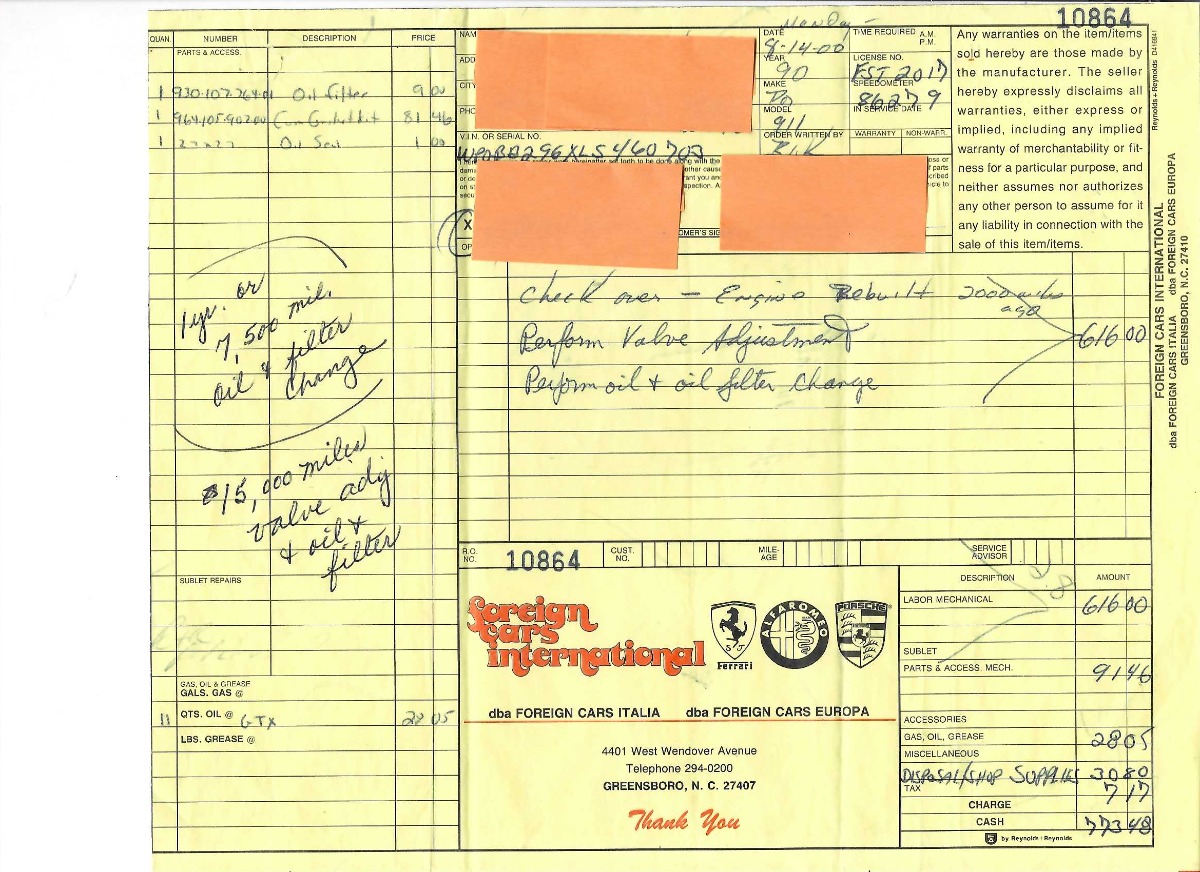 10864
QUAN. NUMBER DESCRIPTION PRICE
PARTS & ACCESS.
1 930-107-764-01 Oil Filter 9 00
1 964-105-902-00 Cam Gasket Kit 81 46
1 27x27 Oil Seal 1 00
1 yr. or
7,500 mil.
oil & filter
change
15,000 miles
valve adj
& oil &
filter
SUBLET REPAIRS
GAS, OIL & GREASE
GALS. GAS @
11 QTS. OIL @ GTX 28 05
LBS. GREASE @
NAM
ADD
CITY
PHO
Monday -
DATE
8-14-00
YEAR
90
MAKE
Po
MODEL
911
ORDER WRITTEN BY
TIME REQUIRED A.M.
P.M.
LICENSE NO.
FST 2017
SPEEDOMETER
86279
IN SERVICE DATE
WARRANTY NON-WARR.
V.I.N. OR SERIAL NO.
X
OMER'S SIG
Any warranties on the item/items
sold hereby are those made by
the manufacturer. The seller
hereby expressly disclaims all
warranties, either express or
implied, including any implied
warranty of merchantability or fit-
ness for a particular purpose, and
neither assumes nor authorizes
any other person to assume for it
any liability in connection with the
sale of this item/items.
Check over - Engine Rebuilt 2000 miles
ago
Perform Valve Adjustment 616 00
Perform oil & oil filter change
R.O.
NO. 10864 CUST.
NO. MILE-
AGE SERVICE
ADVISOR
foreign
cars
international
Ferrari
ALFA ROMEO
PORSCHE
dba FOREIGN CARS ITALIA dba FOREIGN CARS EUROPA
4401 West Wendover Avenue
Telephone 294-0200
GREENSBORO, N. C. 27407
Thank You
DESCRIPTION AMOUNT
LABOR MECHANICAL 616 00
SUBLET
PARTS & ACCESS. MECH. 91 46
ACCESSORIES
GAS, OIL, GREASE 28 05
MISCELLANEOUS
DISPOSAL/SHOP SUPPLIES 30 80
TAX 7 17
CHARGE
CASH 773 48
by Reynolds+Reynolds
Reynolds+Reynolds
FOREIGN CARS INTERNATIONAL
dba FOREIGN CARS ITALIA dba FOREIGN CARS EUROPA
GREENSBORO, N.C. 27410